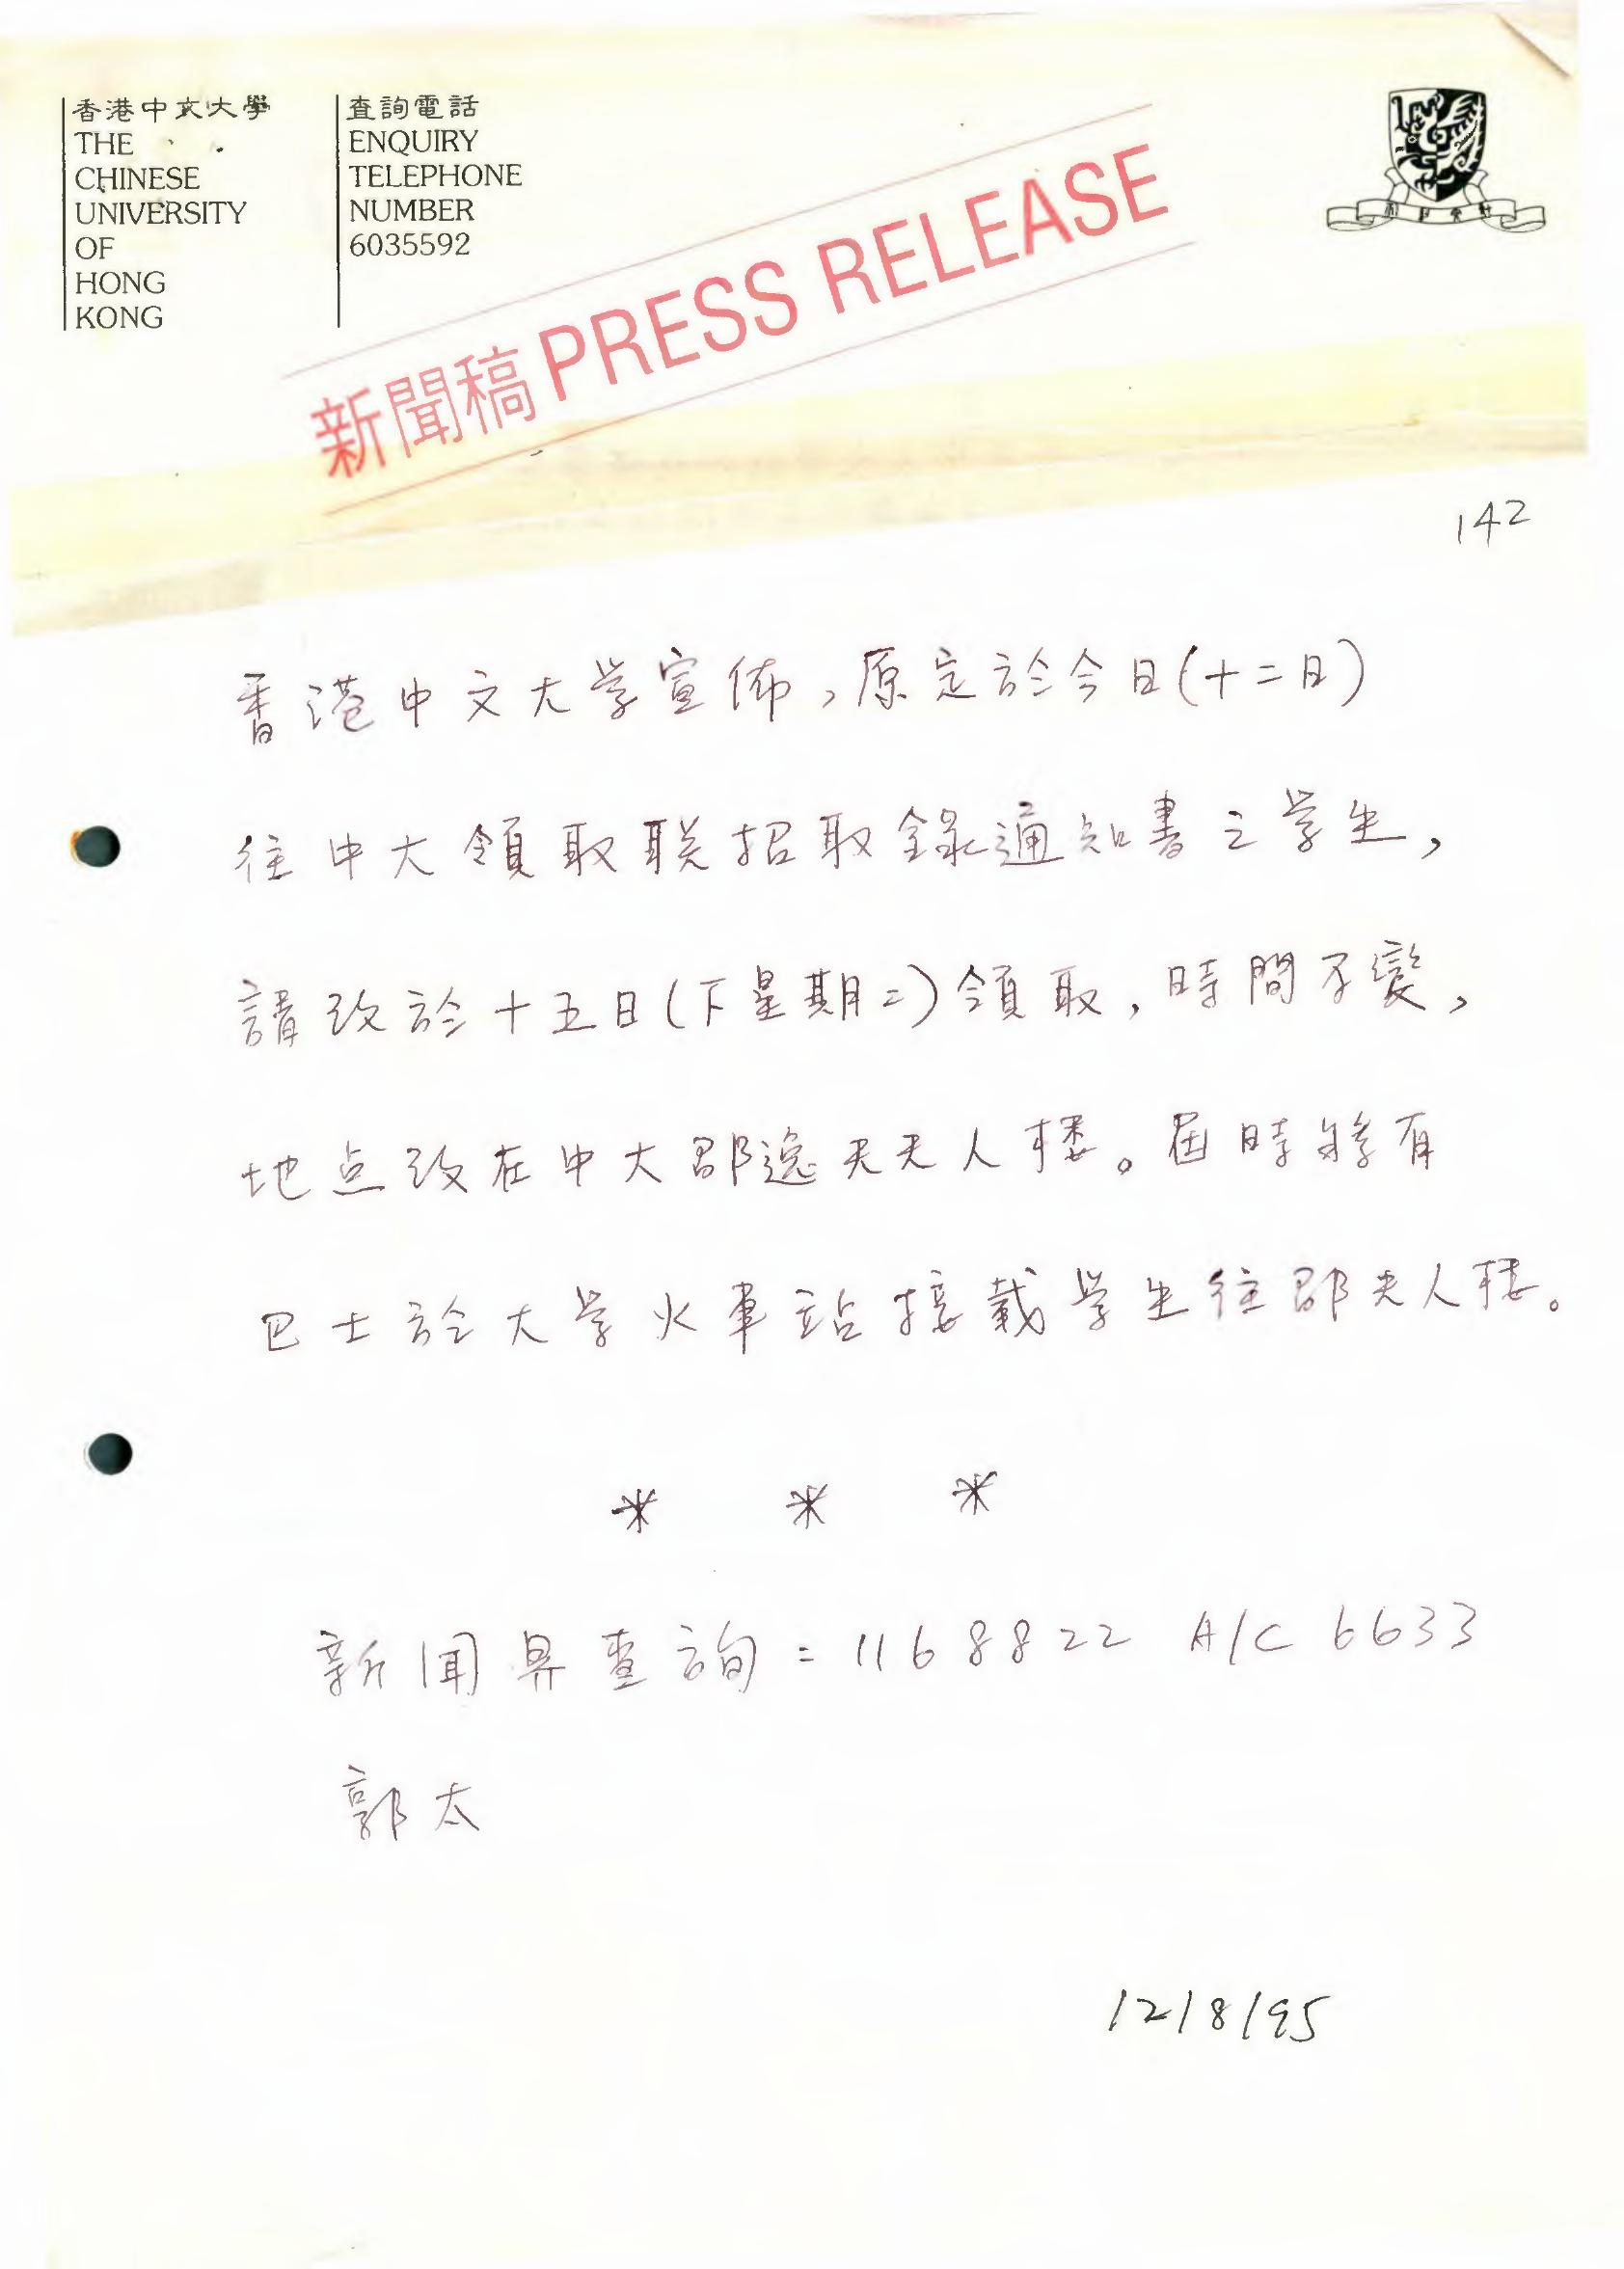 香港中文大學
THE
CHINESE
UNIVERSITY
OF
HONG
KONG
查詢電話
ENQUIRY
TELEPHONE
NUMBER
6035592
新聞稿 PRESS RELEASE
142
香港中文大学宣佈，原定於今日(十二日)
往中大領取联招取錄通知書之学生，
請改於十五日(下星期二)領取，時間不變，
地点改在中大邵逸夫夫人楼。屆時將有
巴士於大学火車站接載学生往邵夫人楼。
* * *
新闻界查詢：1168822 A/C 6633
郭太
12/8/95